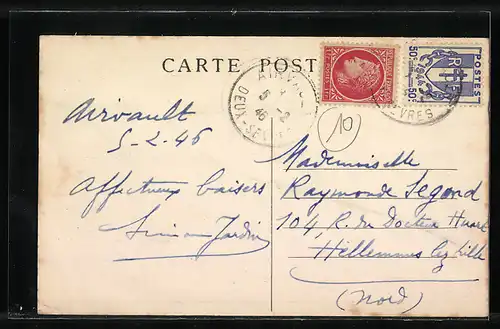 CARTE POST
AIRVAULT
5-2
46
DEUX-SEVRES
POSTES
50c 50c
10
Airvault
5-2-46
Affectueux baisers
Mademoiselle
Raymonde Segond
104, R. du Docteur
Hellemmes lez Lille
(Nord)